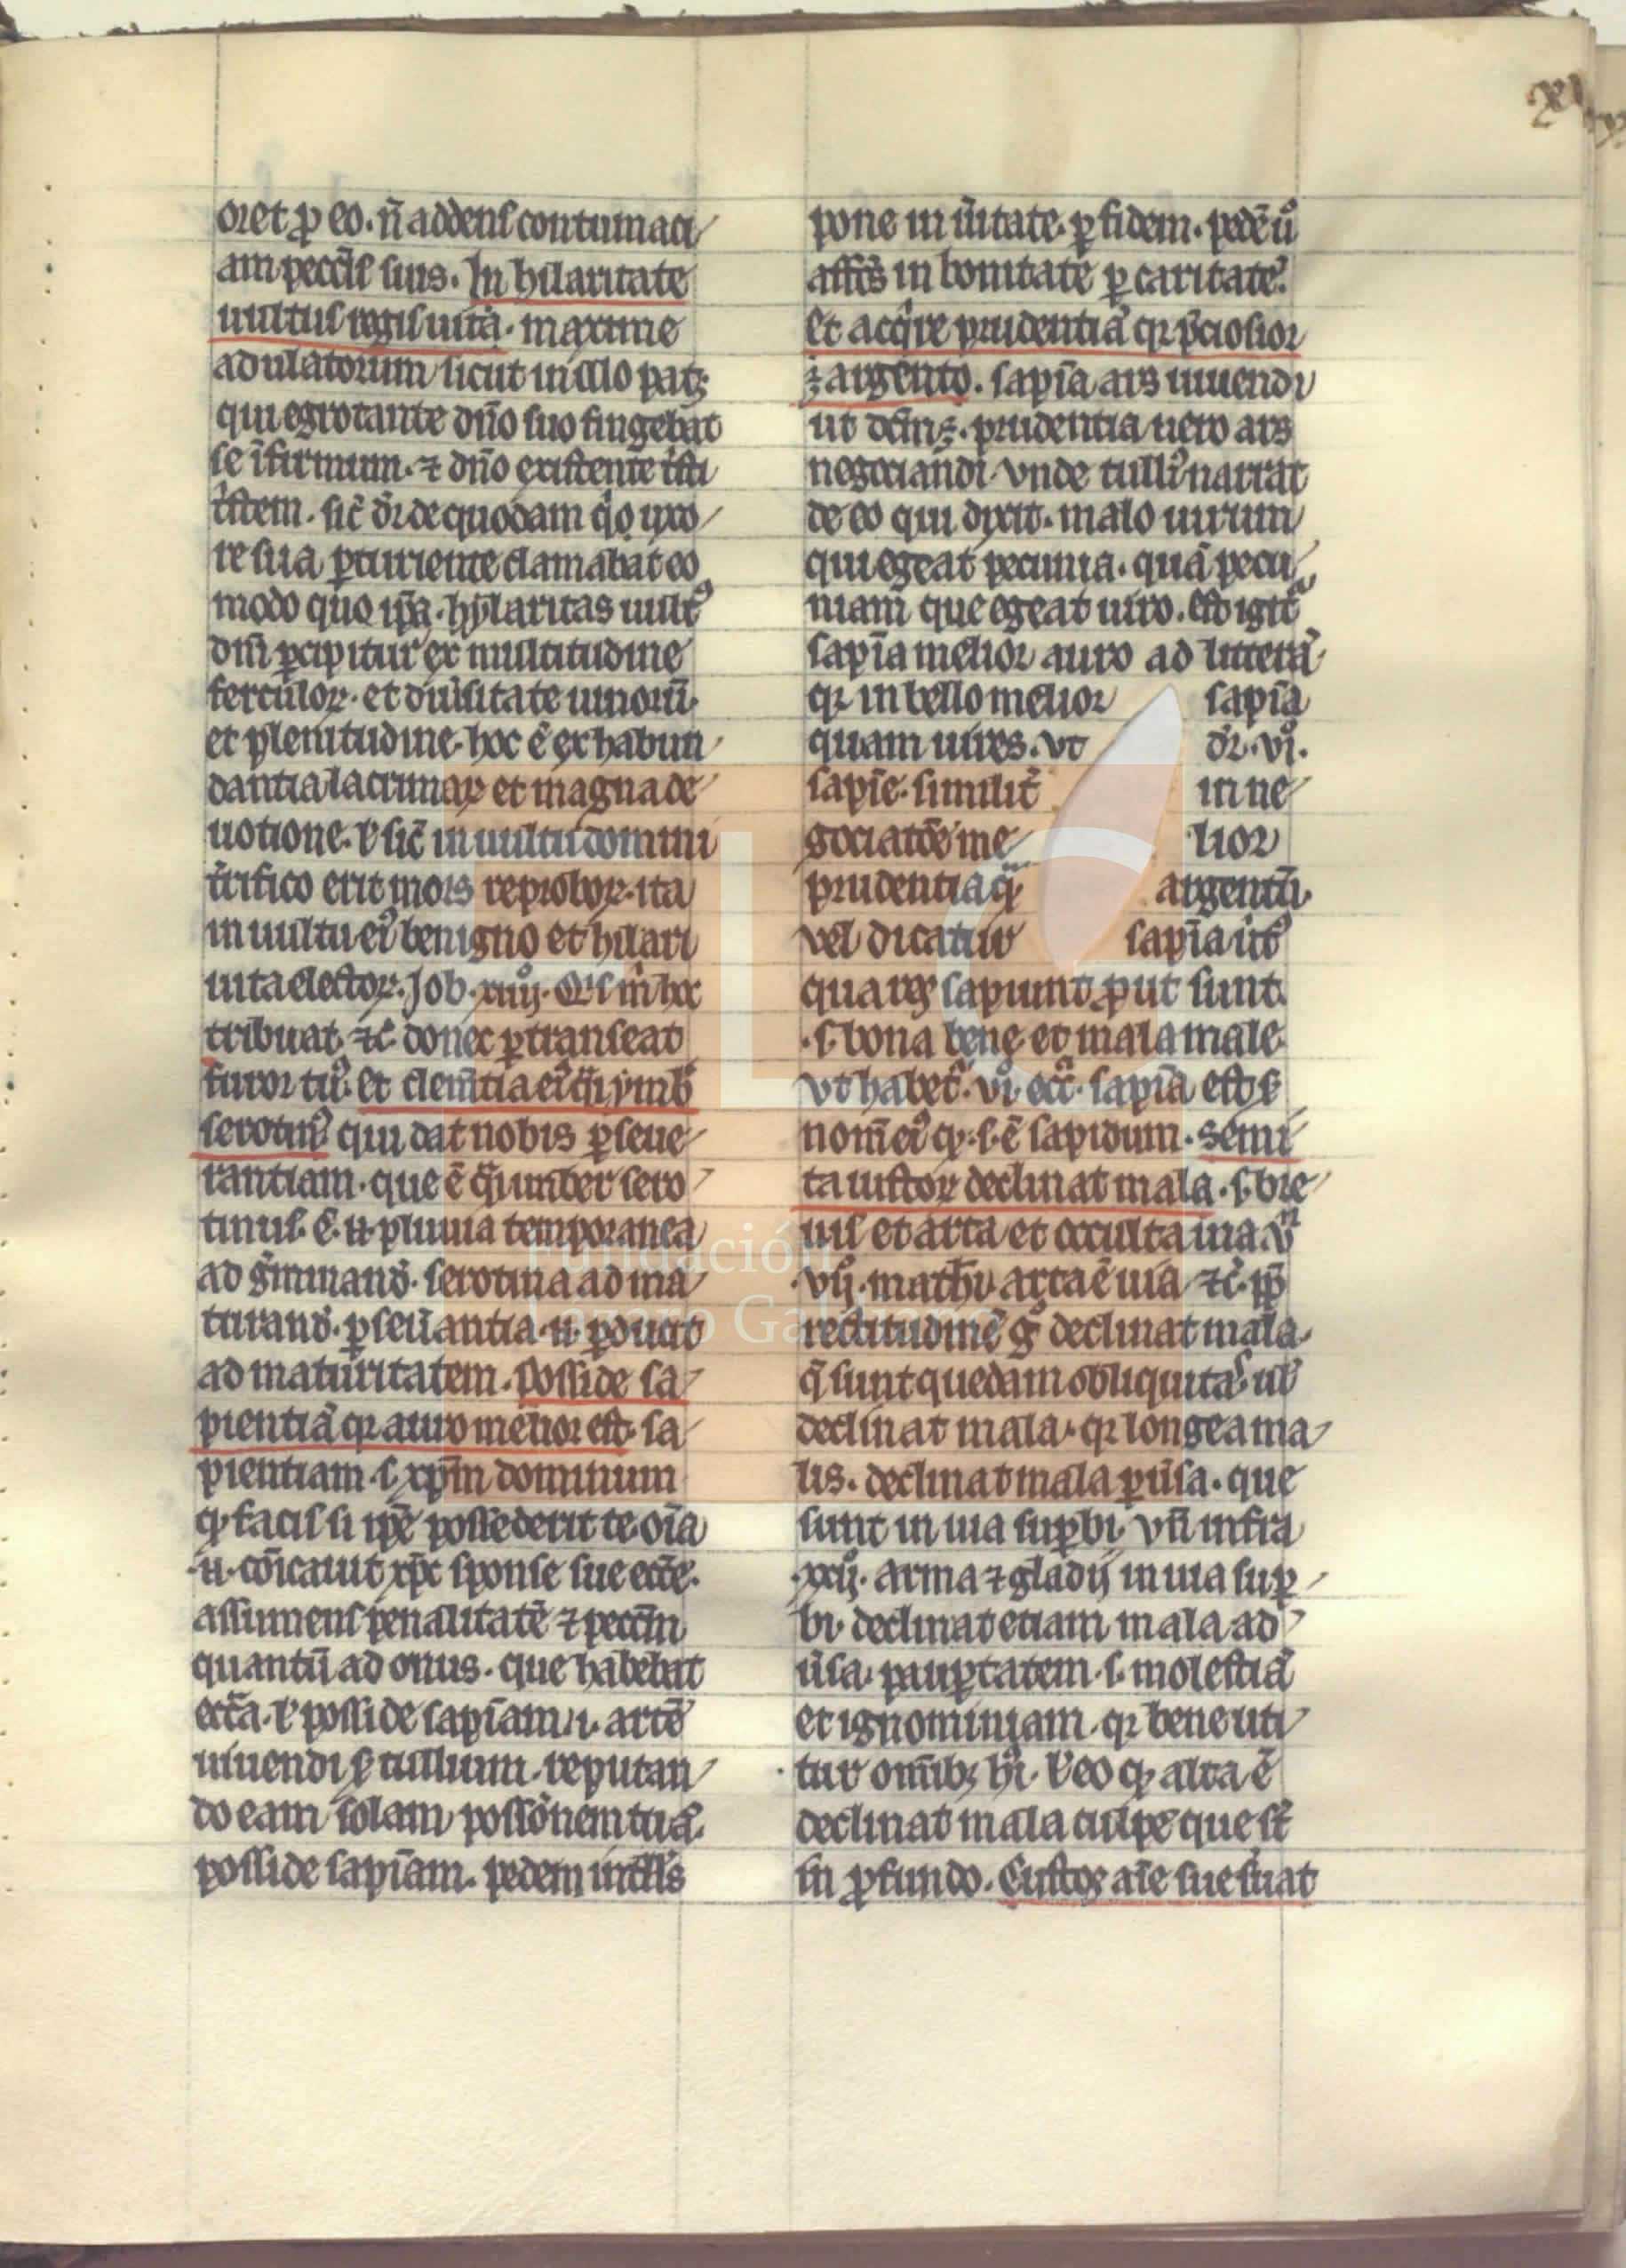 oret ꝓ eo. n̄ addens contumaci
am pecc̄is suis. In hilaritate
uultus regis uita. maxime
adulatorum sicut in illo patꝫ
qui egrotante dn̄o suo fingebat
se ifirmum. ⁊ dn̄o existente tr̄isti
tr̄istem. sic̄ dr̄ de quodam qͦ uxo
re sua ꝑturiente clamabat eo
modo quo ip̄a. hylaritas uult᷒
dn̄i ꝑcipitur ex multitudine
ferculoꝝ. et diu̓sitate uinoꝝ.
et plenitudine. hoc ē ex habun
dantia lacrimaꝝ et magna de
uotione. ł sic̄ in uultu domini
t̓rifico erit mors reproboꝝ. ita
in uultu ei᷒ benigno et hilari
uita electoꝝ. Job. xiiij. Qis m̄ hoc
tribuat. ⁊c̄. donec ꝑtranseat
furor tu᷒. et clem̄tia ei᷒ q̄i ymb̓
serotin᷒ qui dat nobis ꝑseue
rantiam. que ē q̄i imber sero
tinus. E. n. pluuia temporanea
ad g̓minand̄. serotina ad ma
turand̄. ꝑseu̓antia. n. ꝑducit
ad maturitatem. Posside sa
pientiā qꝛ auro melior est. sa
pientiam. s. xp̄m dominum
qͥ facis si ip̄e possederit te. oīa
n. cōicauit xp̄c sponse sue ecc̄e.
assumens penalitatē ⁊ pecc̄m
quantū ad onus. que habebat
ecc̄a. ł posside sapīam. i. artē
uiuendi ẜ tullium. reputan
do eam solam possōnem tuā.
posside sapīam. pedem intll̓s
pone in ū̓itate. ꝑ fidem. pedē ū̊
affc̄s in bonitate ꝑ caritatē.
et acqͥre prudentiā qꝛ p̄ciosior
ē argento. sapīa ars uiuendi
ut dc̄m ē. prudentia uero ars
negociandi. vnde tulli᷒ narrat
de eo qui dixit. malo uirum
qui egeat pecunia. quā pecu
niam que egeat uiro. est igit̓
sapīa melior auro ad litterā.
qꝛ in bello melior sapīa
quam uires. vt dr̄. vi̊.
sapīe. similit̓ in ne
gociatōe me lior
prudentia qͣ̄ argentū.
vel dicatur sapīa ut᷒
qua res sapiunt ꝓut sunt.
.s. bona bene et mala male.
vt habet᷑. vi̊. ecc̄. sapīa est ẜ
nom̄ ei᷒ qꝫ. s. ē sapidum. Semi
ta iustoꝝ declinat mala. s. bre
uis et arta et occulta uia. vn̄
.vij. math̄i. arta ē uia. ⁊c̄. ꝓp̄
rectitudinē gͦ declinat mala.
q̄ sunt quedam obliquitas. uł
declinat mala. qꝛ longe a ma
lis. declinat mala ꝑu̓sa. que
sunt in uia suꝑbi. vn̄ infra
.xxij. arma ⁊ gladij in uia suꝑ
bi. declinat etiam mala ad
u̓sa. pauꝑtatem. s. molestiā
et ignominiam. qꝛ bene uti
tur om̄ibꝫ hiis. ł eo qꝫ alta ē
declinat mala culpe que st̄
in ꝓfundo. Custos aīe sue s̓uat